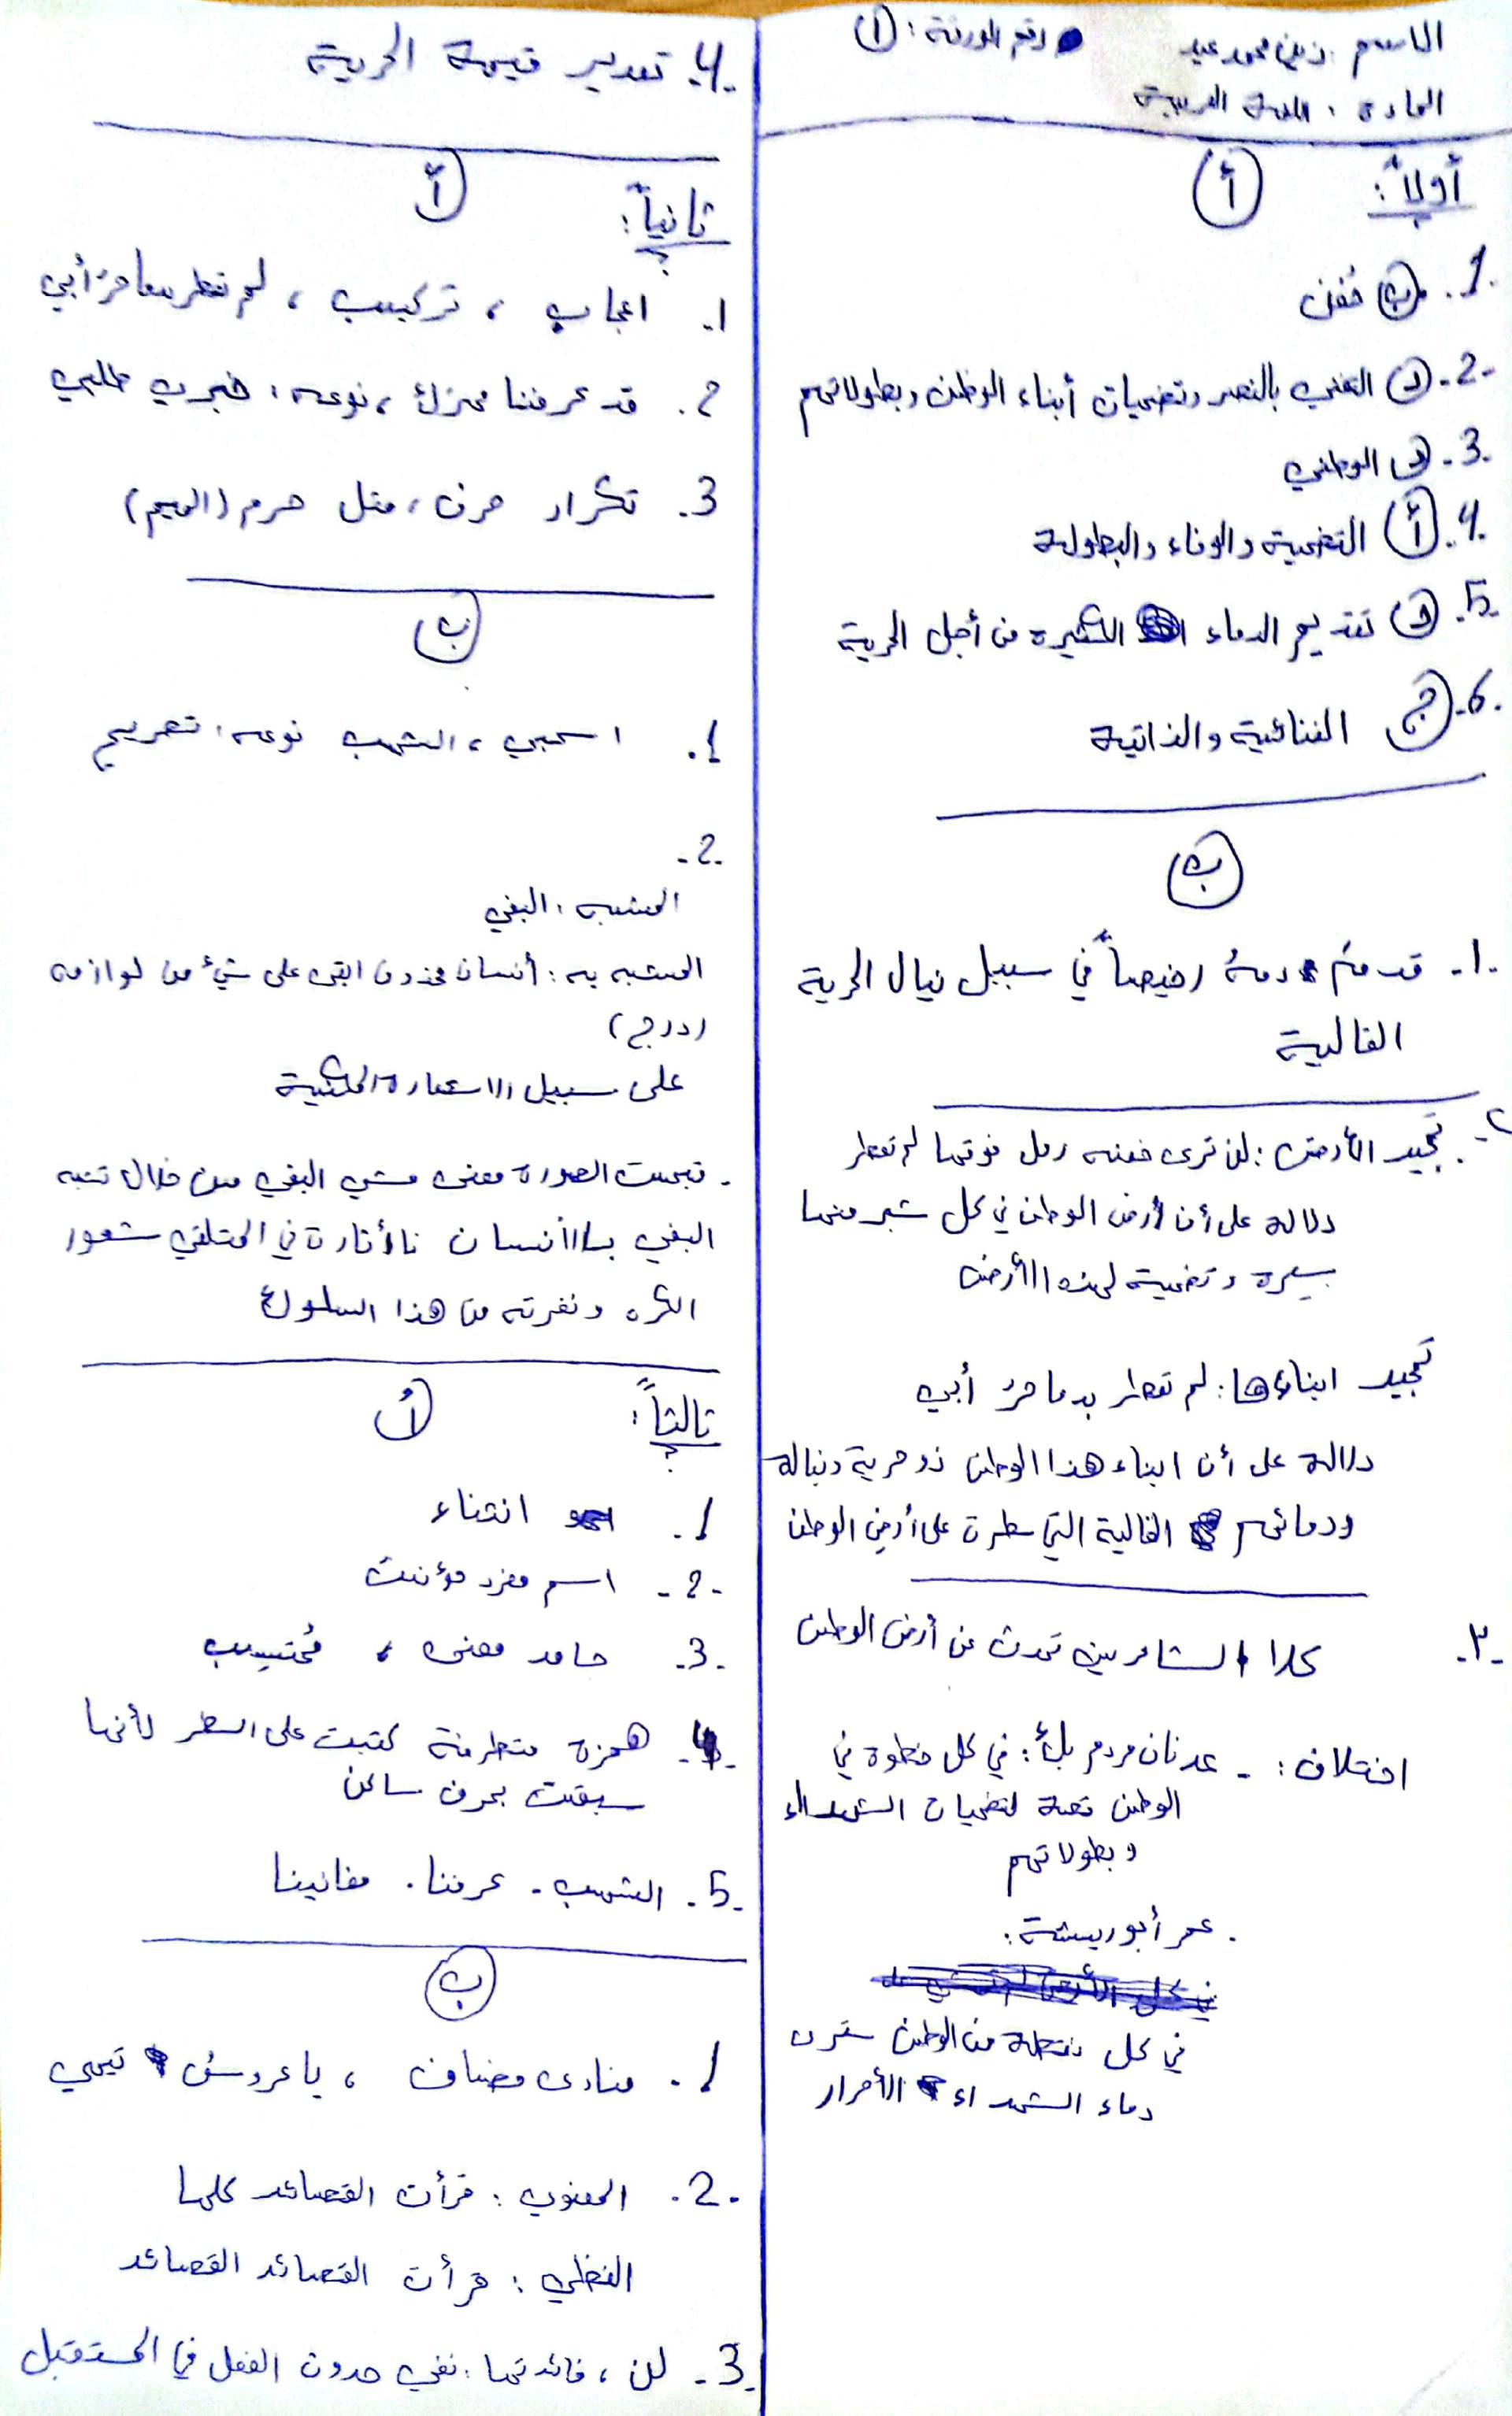 الاسم : زين محمد عيد رقم الورقة : ①
المادة : اللغة العربية
أولاً : أ
1. ب خُفَن
2. د التغني بالنصر وتضحيات أبناء الوطن وبطولاتهم
3. د الوطني
4. أ التضحية والوفاء والبطولة
5. د تقديم الدماء الكثيرة من أجل الحرية
6. ج الغنائية والذاتية
ب
1. قدمتم دمهُ رخيصاً في سبيل نيال الحرية
الغالية
2. تمجيد الأرض : لن ترى حفنه رمل فوقها لم تعطر
دلالة على أن أرض الوطن في كل شبر منها
سيرة وتضحية لهذه الأرض
تمجيد ابناءها : لم تعطر بدما حرّ أبي
دلالة على أن ابناء هذا الوطن ذو حرية ونبالة
ودمائهم الغالية التي سطرت على أرض الوطن
٣. كلا الشاعرين تحدث عن أرض الوطن
اختلاف : - عدنان مردم بك : في كل خطوة في
الوطن قصة لتضحيات الشهداء
وبطولاتهم
. عمر أبو ريشة :
في كل نقطة من الوطن سترى
دماء الشهداء الأحرار
4. تقدير قيمة الحرية
ثانياً : أ
1. اعجاب ، تركيب ، لم تعطر بدما حرّ أبي
2. قد عرفنا مهرك ، نوعه : خبري طلبي
3. تكرار حرف ، مثل حرم (الميم)
ب
1. اسحبي ، الشهب نوعه : تصريع
2.
المشبه : البغي
المشبه به : أنسان محذوف ابقى على شيء من لوازمه
(درج)
على سبيل الاستعارة المكنية
. قبحت الصورة معنى مشي البغي من خلال تشبه
البغي بالأنسان فأثارت في المتلقي شعور
الكره ونفرته من هذا السلوك
ثالثاً : أ
1. انتشاء
2. اسم مفرد مؤنث
3. جامد معنى ، مُحتسِب
4. همزة متطرفة كتبت على السطر لأنها
سبقت بحرف ساكن
5. الشهب . عرفنا . مغانينا
ب
1. منادى مضاف ، يا عروسُ تيهي
2. المعنوي : قرأت القصائد كلها
اللفظي : قرأت القصائد القصائد
3. لن ، فائدتها : نفي حدوث الفعل في المستقبل